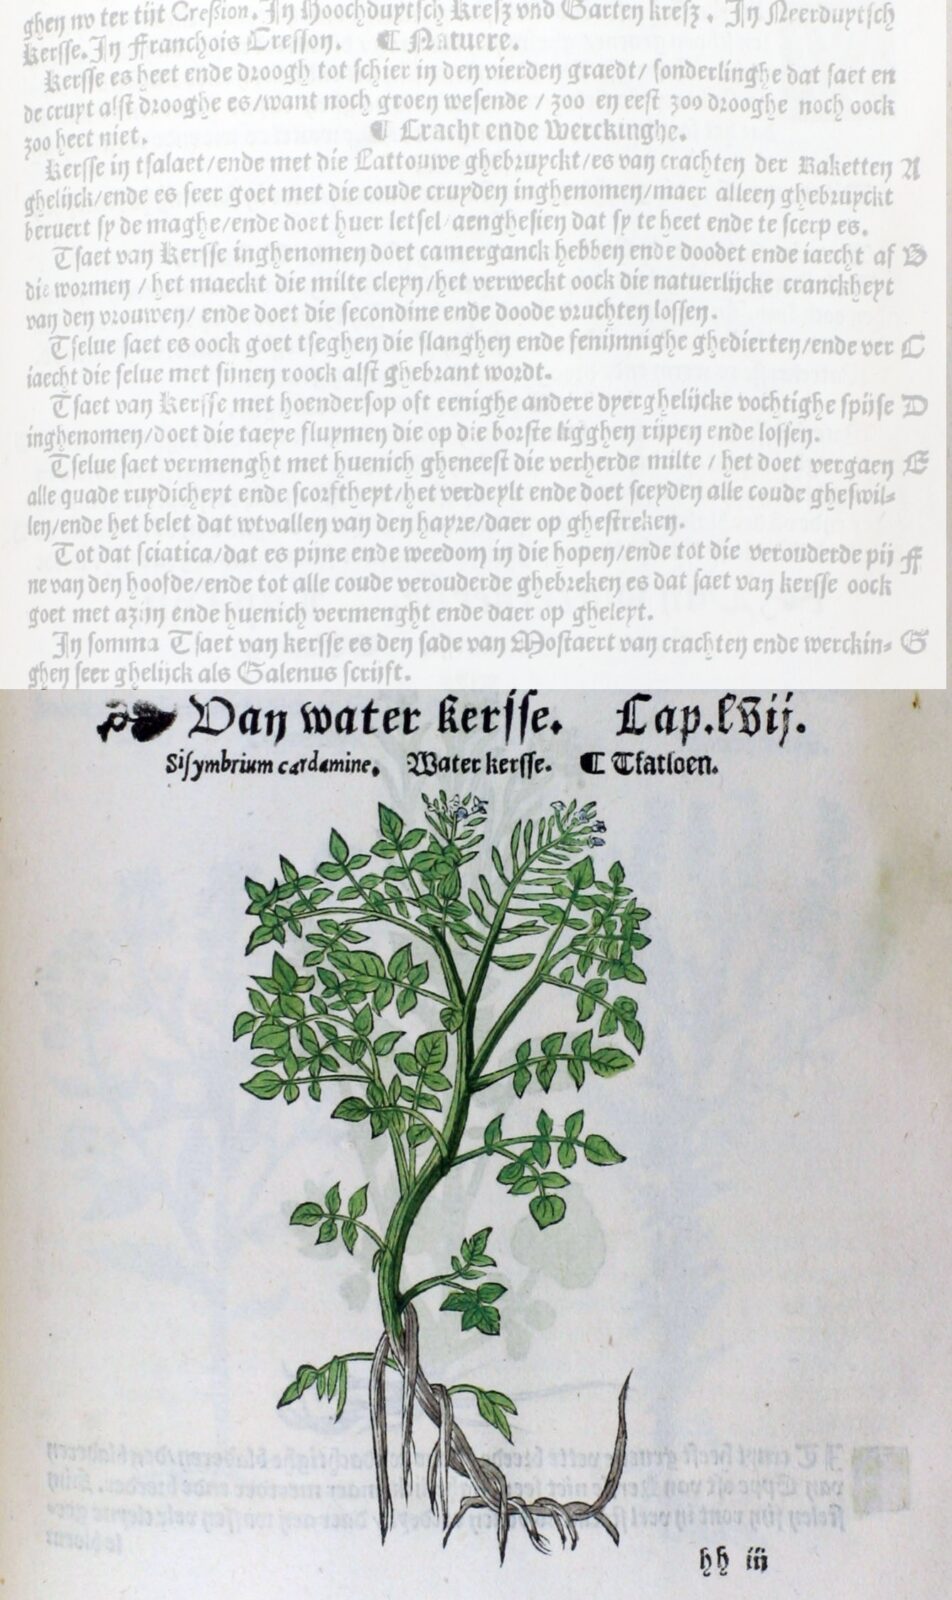 ghen nv ter tijt Cresßion. In Hoochduytsch Kresz vnd Garten kresz. In Neerduytsch
Kersse. In Franchois Cresson. ¶ Natuere.
Kersse es heet ende droogh tot schier in den vierden graedt/ sonderlinghe dat saet en
de cruyt alst drooghe es/want noch groen wesende / zoo en eest zoo drooghe noch oock
zoo heet niet. ¶ Cracht ende Werckinghe.
Kersse in tsalaet/ende met die Lattouwe ghebruyckt/es van crachten der Raketten A
ghelijck/ende es seer goet met die coude cruyden inghenomen/maer alleen ghebruyckt
beruert sy de maghe/ende doet huer letsel/aenghesien dat sy te heet ende te scerp es.
Tsaet van Kersse inghenomen doet camerganck hebben ende doodet ende iaecht af B
die wormen / het maeckt die milte cleyn/het verweckt oock die natuerlijcke cranckheyt
van den vrouwen/ ende doet die secondine ende doode vruchten lossen.
Tselue saet es oock goet tseghen die slanghen ende fenijnnighe ghedierten/ende ver C
iaecht die selue met sijnen roock alst ghebrant wordt.
Tsaet van Kersse met hoendersop oft eenighe andere dyerghelijcke vochtighe spijse D
inghenomen/doet die taeye fluymen die op die borste ligghen rijpen ende lossen.
Tselue saet vermenght met huenich gheneest die verherde milte / het doet vergaen E
alle quade ruydicheyt ende scorftheyt/het verdeylt ende doet sceyden alle coude gheswil-
len/ende het belet dat wtvallen van den hayre/daer op ghestreken.
Tot dat sciatica/dat es pijne ende weedom in die hopen/ende tot die verouderde pij F
ne van den hoofde/ende tot alle coude verouderde ghebreken es dat saet van kersse oock
goet met azijn ende huenich vermenght ende daer op gheleyt.
In somma Tsaet van kersse es den sade van Mostaert van crachten ende werckin- G
ghen seer ghelijck als Galenus scrijft.
Van water kersse. Cap.lvij.
Sisymbrium cardamine. Water kersse. ¶ Tfatsoen.
hh iii